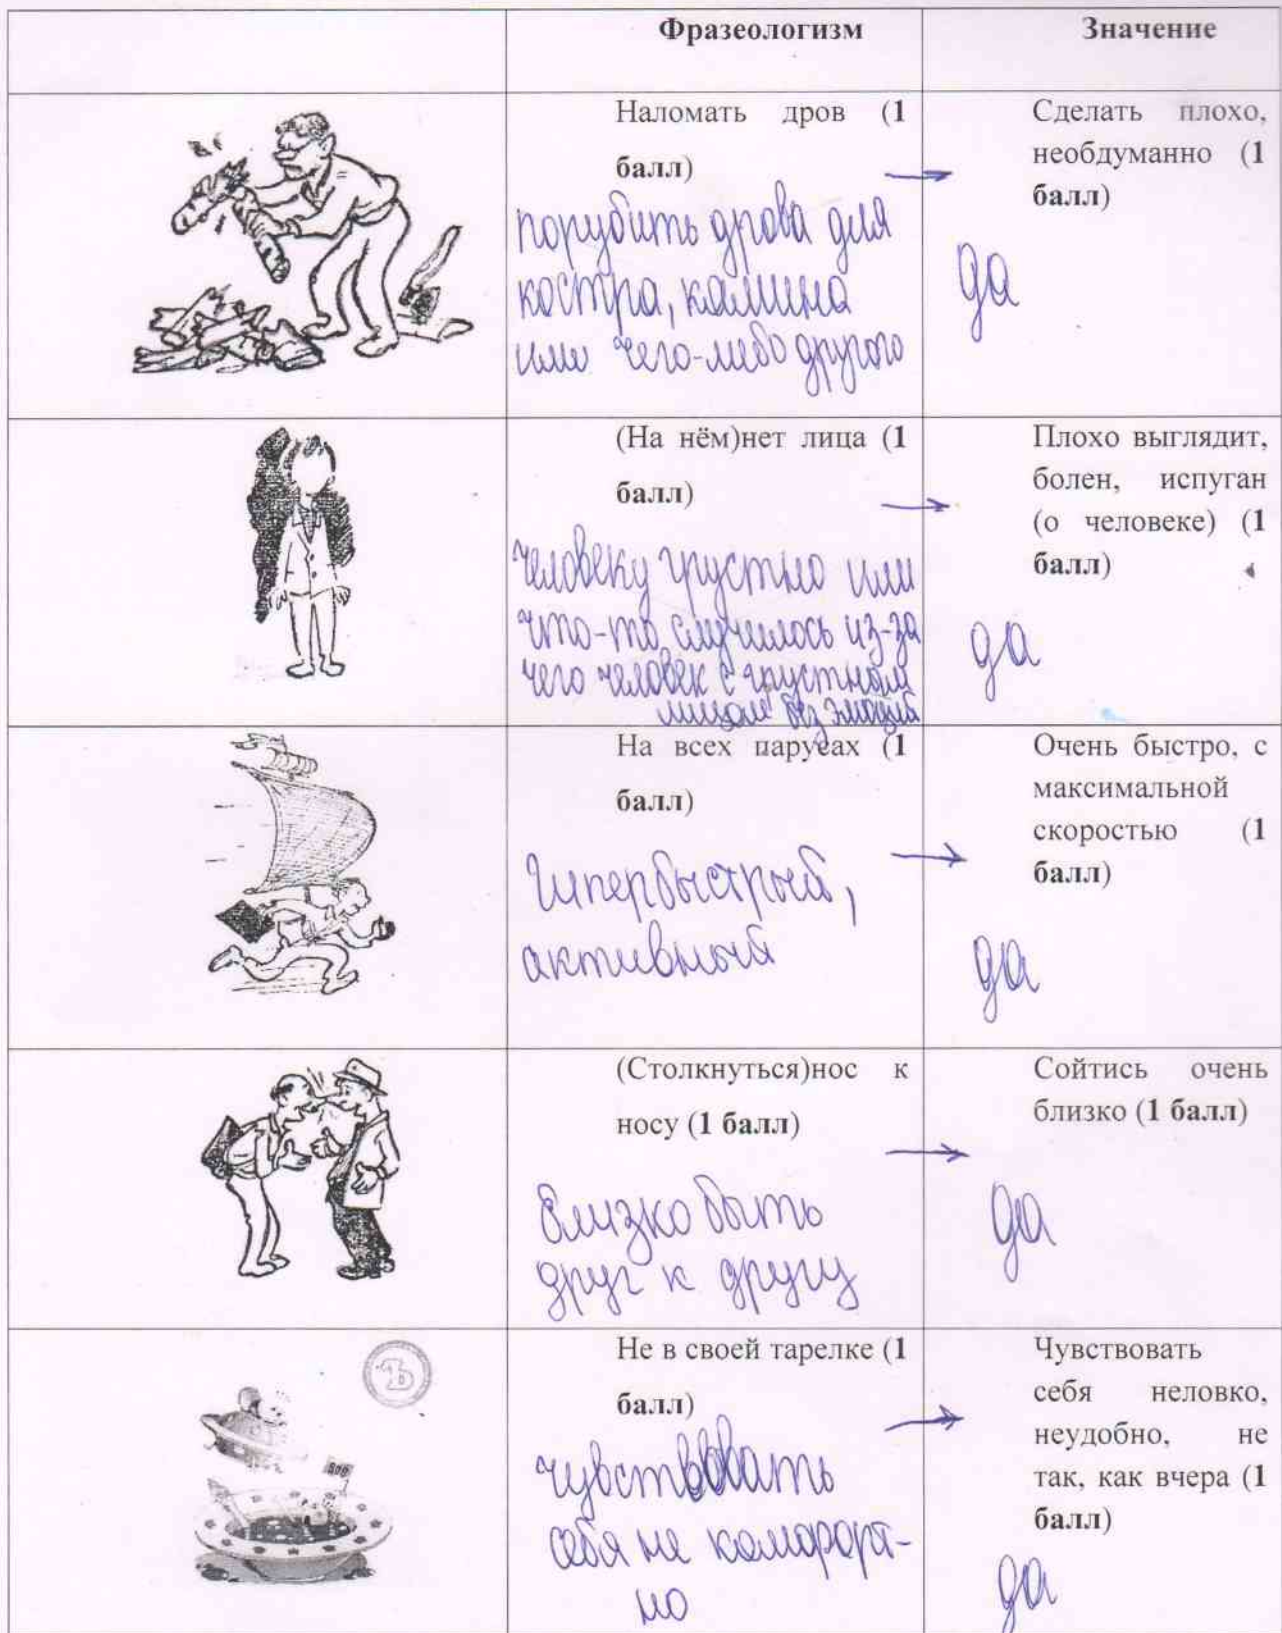 Фразеологизм
Значение
Наломать дров (1
балл)
порубить дрова для
костра, камина
или чего-либо другого
Сделать плохо,
необдуманно (1
балл)
да
(На нём)нет лица (1
балл)
человеку грустно или
что-то случилось из-за
чего человек с грустном
лицом без эмоций
Плохо выглядит,
болен, испуган
(о человеке) (1
балл)
да
На всех парусах (1
балл)
Гипербыстрый,
активный
Очень быстро, с
максимальной
скоростью (1
балл)
да
(Столкнуться)нос к
носу (1 балл)
близко быть
друг к другу
Сойтись очень
близко (1 балл)
да
Ъ
Не в своей тарелке (1
балл)
чувствовать
себя не комфорт-
но
Чувствовать
себя неловко,
неудобно, не
так, как вчера (1
балл)
да